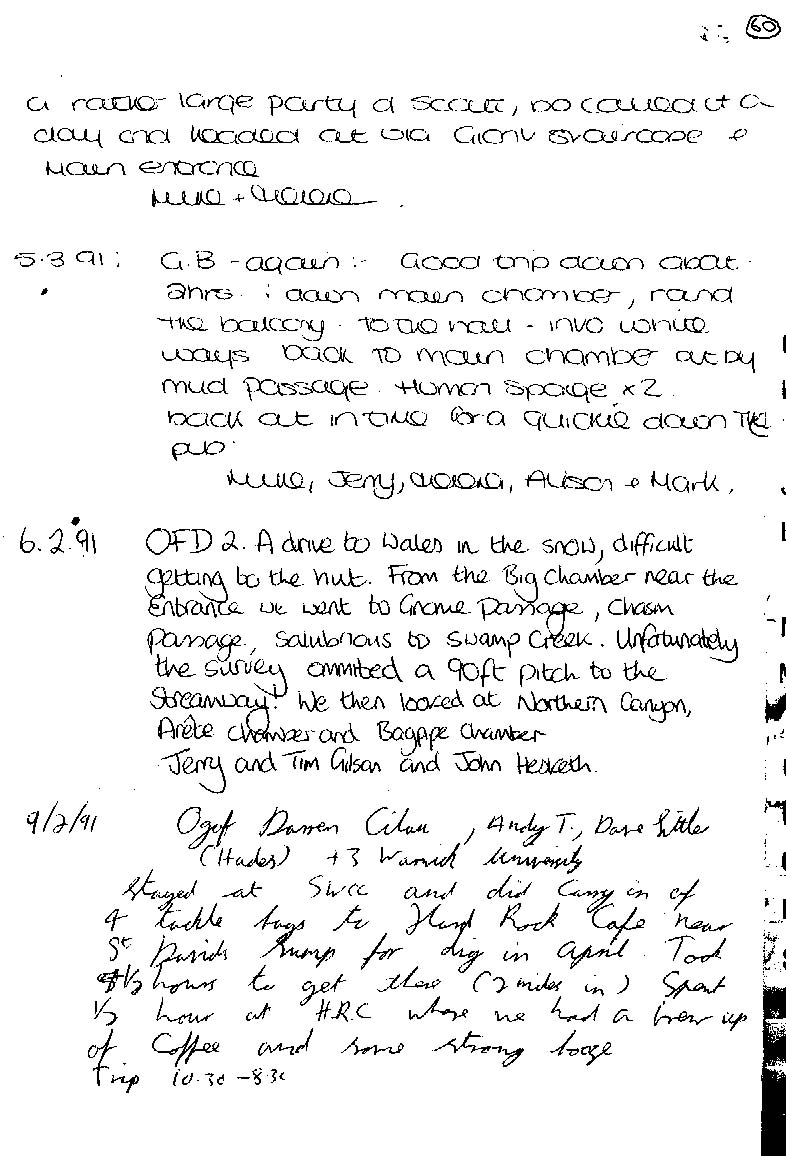 60
a rather large party of scouts, so called it a
day and headed out via Giant staircase +
Main entrance
Mike +
5.3 91: G.B - again :- Good trip down about
2hrs : down main chamber, round
the balcony. To the hall - into white
ways back to main chamber out by
mud passage. Human Sponge x 2.
back out in time for a quickie down the
pub.
Mike, Jerry, Alison + Mark.
6.2.91 OFD 2. A drive to Wales in the snow, difficult
getting to the hut. From the Big Chamber near the
Entrance we went to Gnome Passage, Chasm
Passage, Salubrious to Swamp Creek. Unfortunately
the survey ommited a 90ft pitch to the
Streamway! We then looked at Northern Canyon,
Arête chamber and Bagpipe Chamber
Jerry and Tim Gilson and John Hesketh.
9/2/91 Ogof Darren Cilau, Andy T., Dave Little
(Hades) +3 Warwick University
Stayed at SWCC and did Carry in of
4 tackle bags to Hard Rock Cafe near
St Davids Rump for dig in April. Took
1/2 hours to get there (2 miles in) Spent
1/2 hour at H.R.C where we had a brew up
of Coffee and some strong booze
Trip 10.30 - 8.30